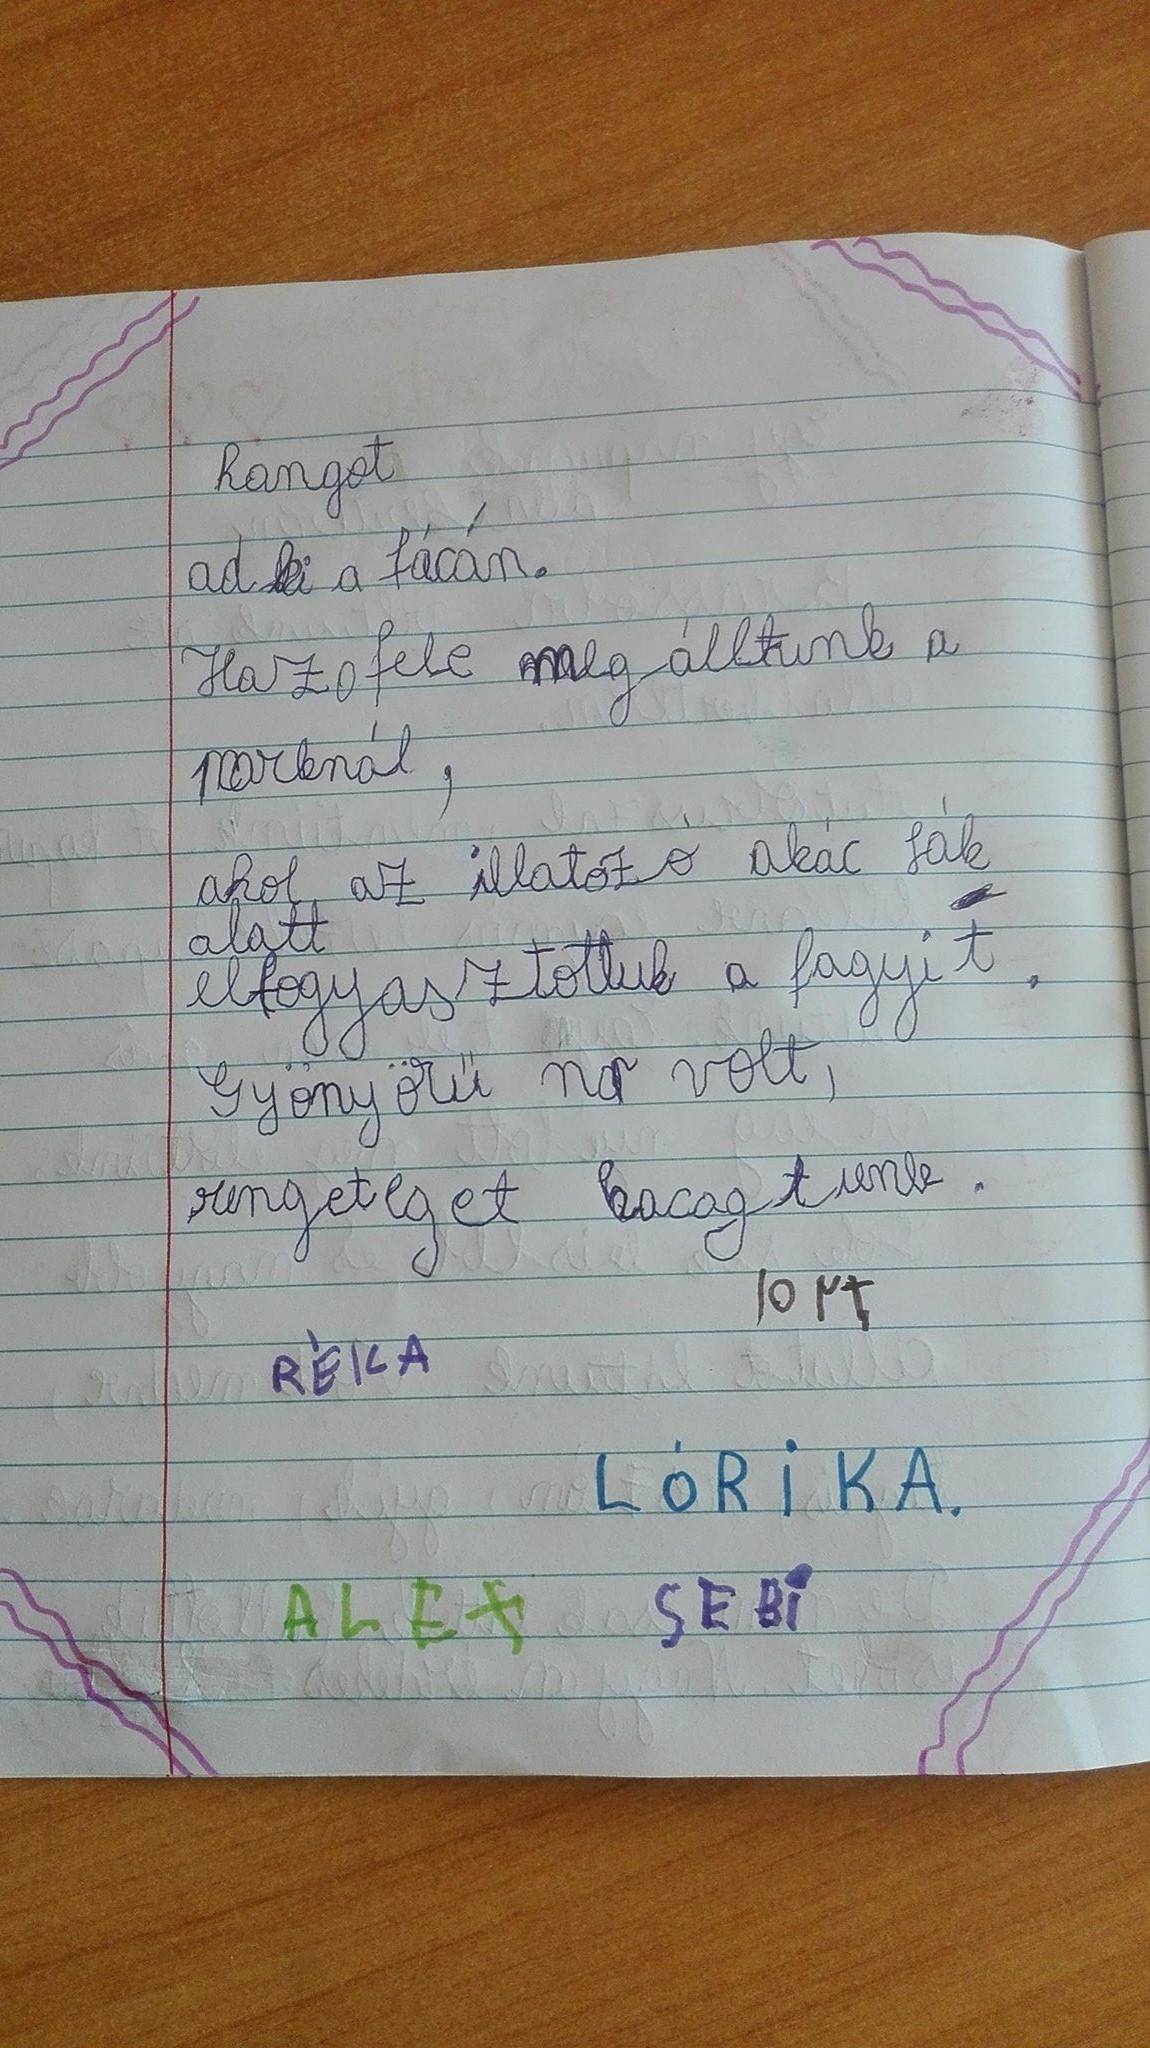 hangot
ad ki a fácán.
Hazafele megálltunk a
parknál,
ahol az illatozó akác fák
alatt
elfogyasztottuk a fagyit.
Gyönyörű nap volt,
rengeteget kacagtunk.
10 pt
RÉKA
LÓRIKA.
ALEX SEBI